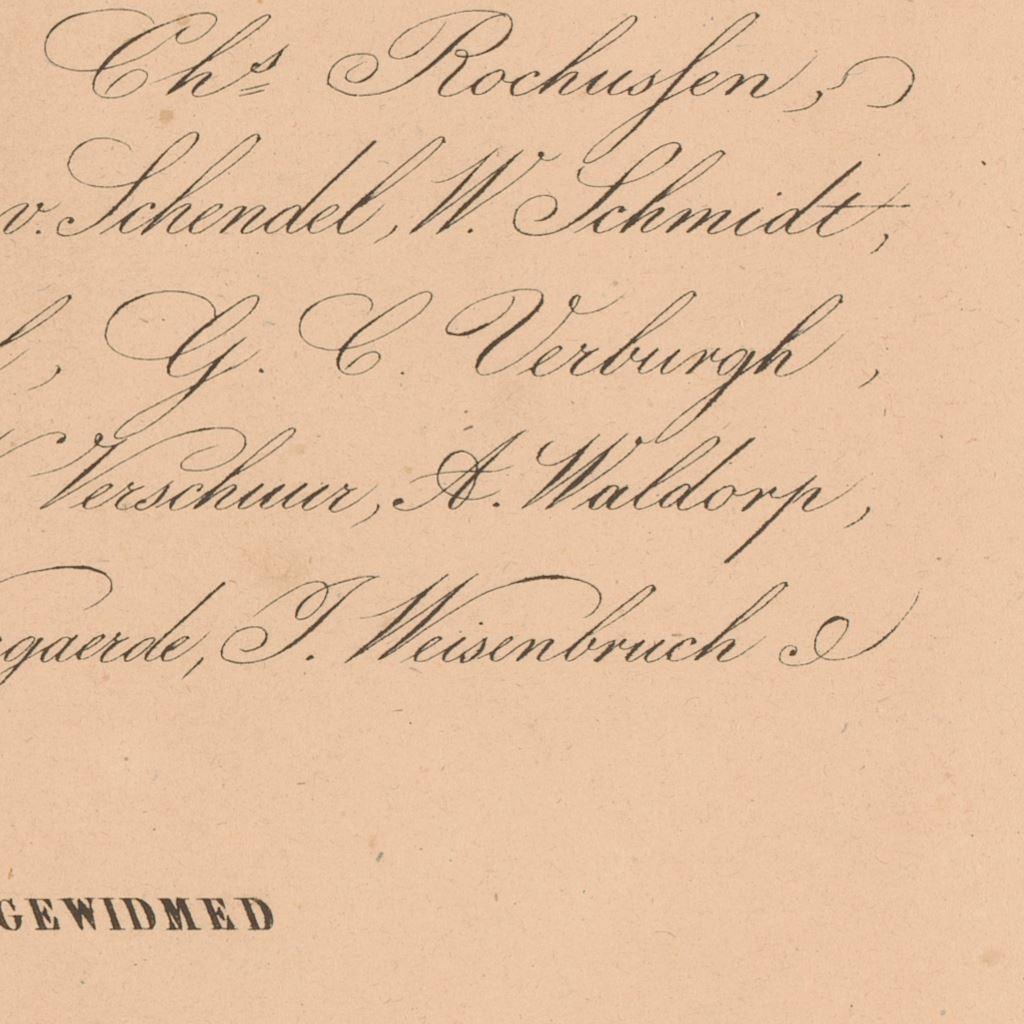 Chs Rochusſen,
v. Schendel, W. Schmidt,
l, G. C. Verburgh,
Verschuur, A. Waldorp,
gaerde, J. Weisenbruch
GEWIDMED